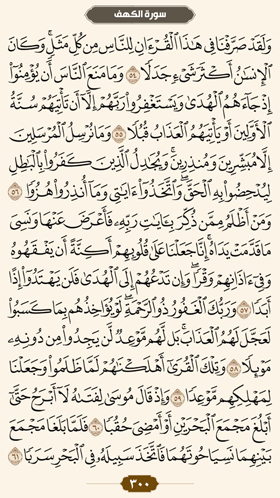 سورة الكهف
وَلَقَدْ صَرَّفْنَا فِي هَٰذَا الْقُرْءَانِ لِلنَّاسِ مِن كُلِّ مَثَلٍ ۚ وَكَانَ
الْإِنسَٰنُ أَكْثَرَ شَيْءٍ جَدَلًا ٥٤ وَمَا مَنَعَ النَّاسَ أَن يُؤْمِنُوٓا۟
إِذْ جَآءَهُمُ الْهُدَىٰ وَيَسْتَغْفِرُوا۟ رَبَّهُمْ إِلَّآ أَن تَأْتِيَهُمْ سُنَّةُ
الْأَوَّلِينَ أَوْ يَأْتِيَهُمُ الْعَذَابُ قُبُلًا ٥٥ وَمَا نُرْسِلُ الْمُرْسَلِينَ
إِلَّا مُبَشِّرِينَ وَمُنذِرِينَ ۚ وَيُجَٰدِلُ الَّذِينَ كَفَرُوا۟ بِالْبَٰطِلِ
لِيُدْحِضُوا۟ بِهِ الْحَقَّ ۖ وَاتَّخَذُوٓا۟ ءَايَٰتِي وَمَآ أُنذِرُوا۟ هُزُوًا ٥٦
وَمَنْ أَظْلَمُ مِمَّن ذُكِّرَ بِـَٔايَٰتِ رَبِّهِۦ فَأَعْرَضَ عَنْهَا وَنَسِيَ
مَا قَدَّمَتْ يَدَاهُ ۚ إِنَّا جَعَلْنَا عَلَىٰ قُلُوبِهِمْ أَكِنَّةً أَن يَفْقَهُوهُ
وَفِيٓ ءَاذَانِهِمْ وَقْرًا ۖ وَإِن تَدْعُهُمْ إِلَى الْهُدَىٰ فَلَن يَهْتَدُوٓا۟ إِذًا
أَبَدًا ٥٧ وَرَبُّكَ الْغَفُورُ ذُو الرَّحْمَةِ ۖ لَوْ يُؤَاخِذُهُم بِمَا كَسَبُوا۟
لَعَجَّلَ لَهُمُ الْعَذَابَ ۚ بَل لَّهُم مَّوْعِدٌ لَّن يَجِدُوا۟ مِن دُونِهِۦ
مَوْئِلًا ٥٨ وَتِلْكَ الْقُرَىٰٓ أَهْلَكْنَٰهُمْ لَمَّا ظَلَمُوا۟ وَجَعَلْنَا
لِمَهْلِكِهِم مَّوْعِدًا ٥٩ وَإِذْ قَالَ مُوسَىٰ لِفَتَىٰهُ لَآ أَبْرَحُ حَتَّىٰٓ
أَبْلُغَ مَجْمَعَ الْبَحْرَيْنِ أَوْ أَمْضِيَ حُقُبًا ٦٠ فَلَمَّا بَلَغَا مَجْمَعَ
بَيْنِهِمَا نَسِيَا حُوتَهُمَا فَاتَّخَذَ سَبِيلَهُۥ فِي الْبَحْرِ سَرَبًا ٦١
٣٠٠